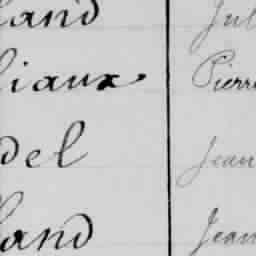 land Jul
liaux Pierre
del Jean
land Jean